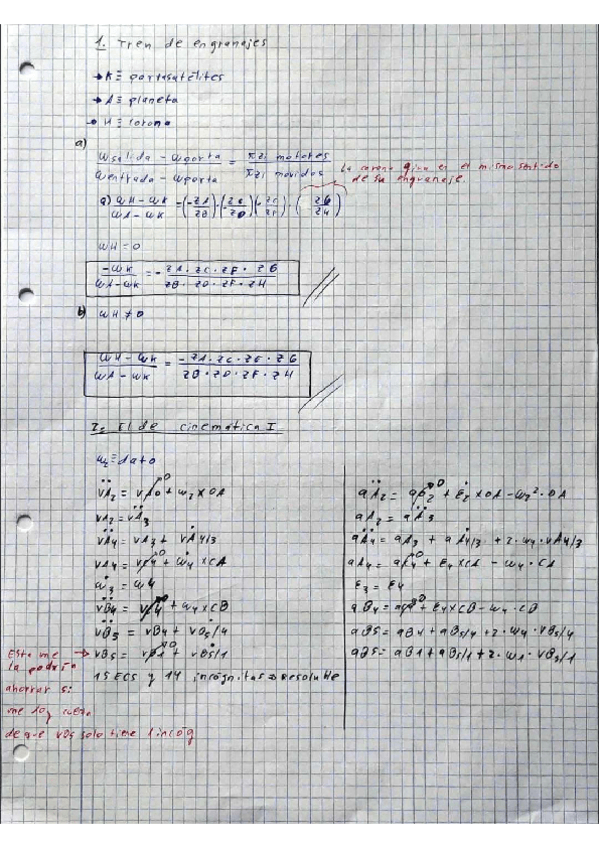 1. Tren de engranajes
→ K ≡ portasatélites
→ A ≡ planeta
→ H ≡ corona
a)
ωsalida - ωporta / ωentrada - ωporta = πzi motores / πzi movidos
La corona gira en el mismo sentido
de su engranaje.
a) ωH - ωK / ωA - ωK = (-ZA/ZB)·(-ZC/ZD)·( )·(ZG/ZH)
ωH = 0
-ωK / ωA - ωK = - ZA·ZC·ZF·ZG / ZB·ZD·ZF·ZH
b) ωH ≠ 0
ωH - ωK / ωA - ωK = -ZA·ZC·ZE·ZG / ZB·ZD·ZF·ZH
2: El de cinemática I
ω2 ≡ dato
v̈A2 = vA0⁰ + ω2 x OA
vA2 = v̈A3
v̈A4 = vA3 + vȦ4/3
vA4 = vC4⁰ + ω̇4 x CA
ω̇3 = ω4
v̈B4 = vC4⁰ + ω4 x CB
v̈B5 = vB4 + vḂ5/4
Esta me → vB5 = vB1⁰ + vḂ5/1
la podría
ahorrar si
15 ECS y 14 incógnitas → resoluble
me doy cuenta
de que vB5 solo tiene 1 incóg
aÄ2 = aO2⁰ + ε̇2 x OA - ω2²·OA
aA2 = aÄ3
aÄ4 = aA3 + aȦ4/3 + 2·ω4·vA4/3
aA4 = aC4⁰ + ε4 x CA - ω4·CA
ε3 = ε4
aB4 = aC4⁰ + ε4 x CB - ω4·CB
aB5 = aB4 + aB5/4 + 2·ω4·vB5/4
aB5 = aB1 + aB5/1 + 2·ω1·vB5/1